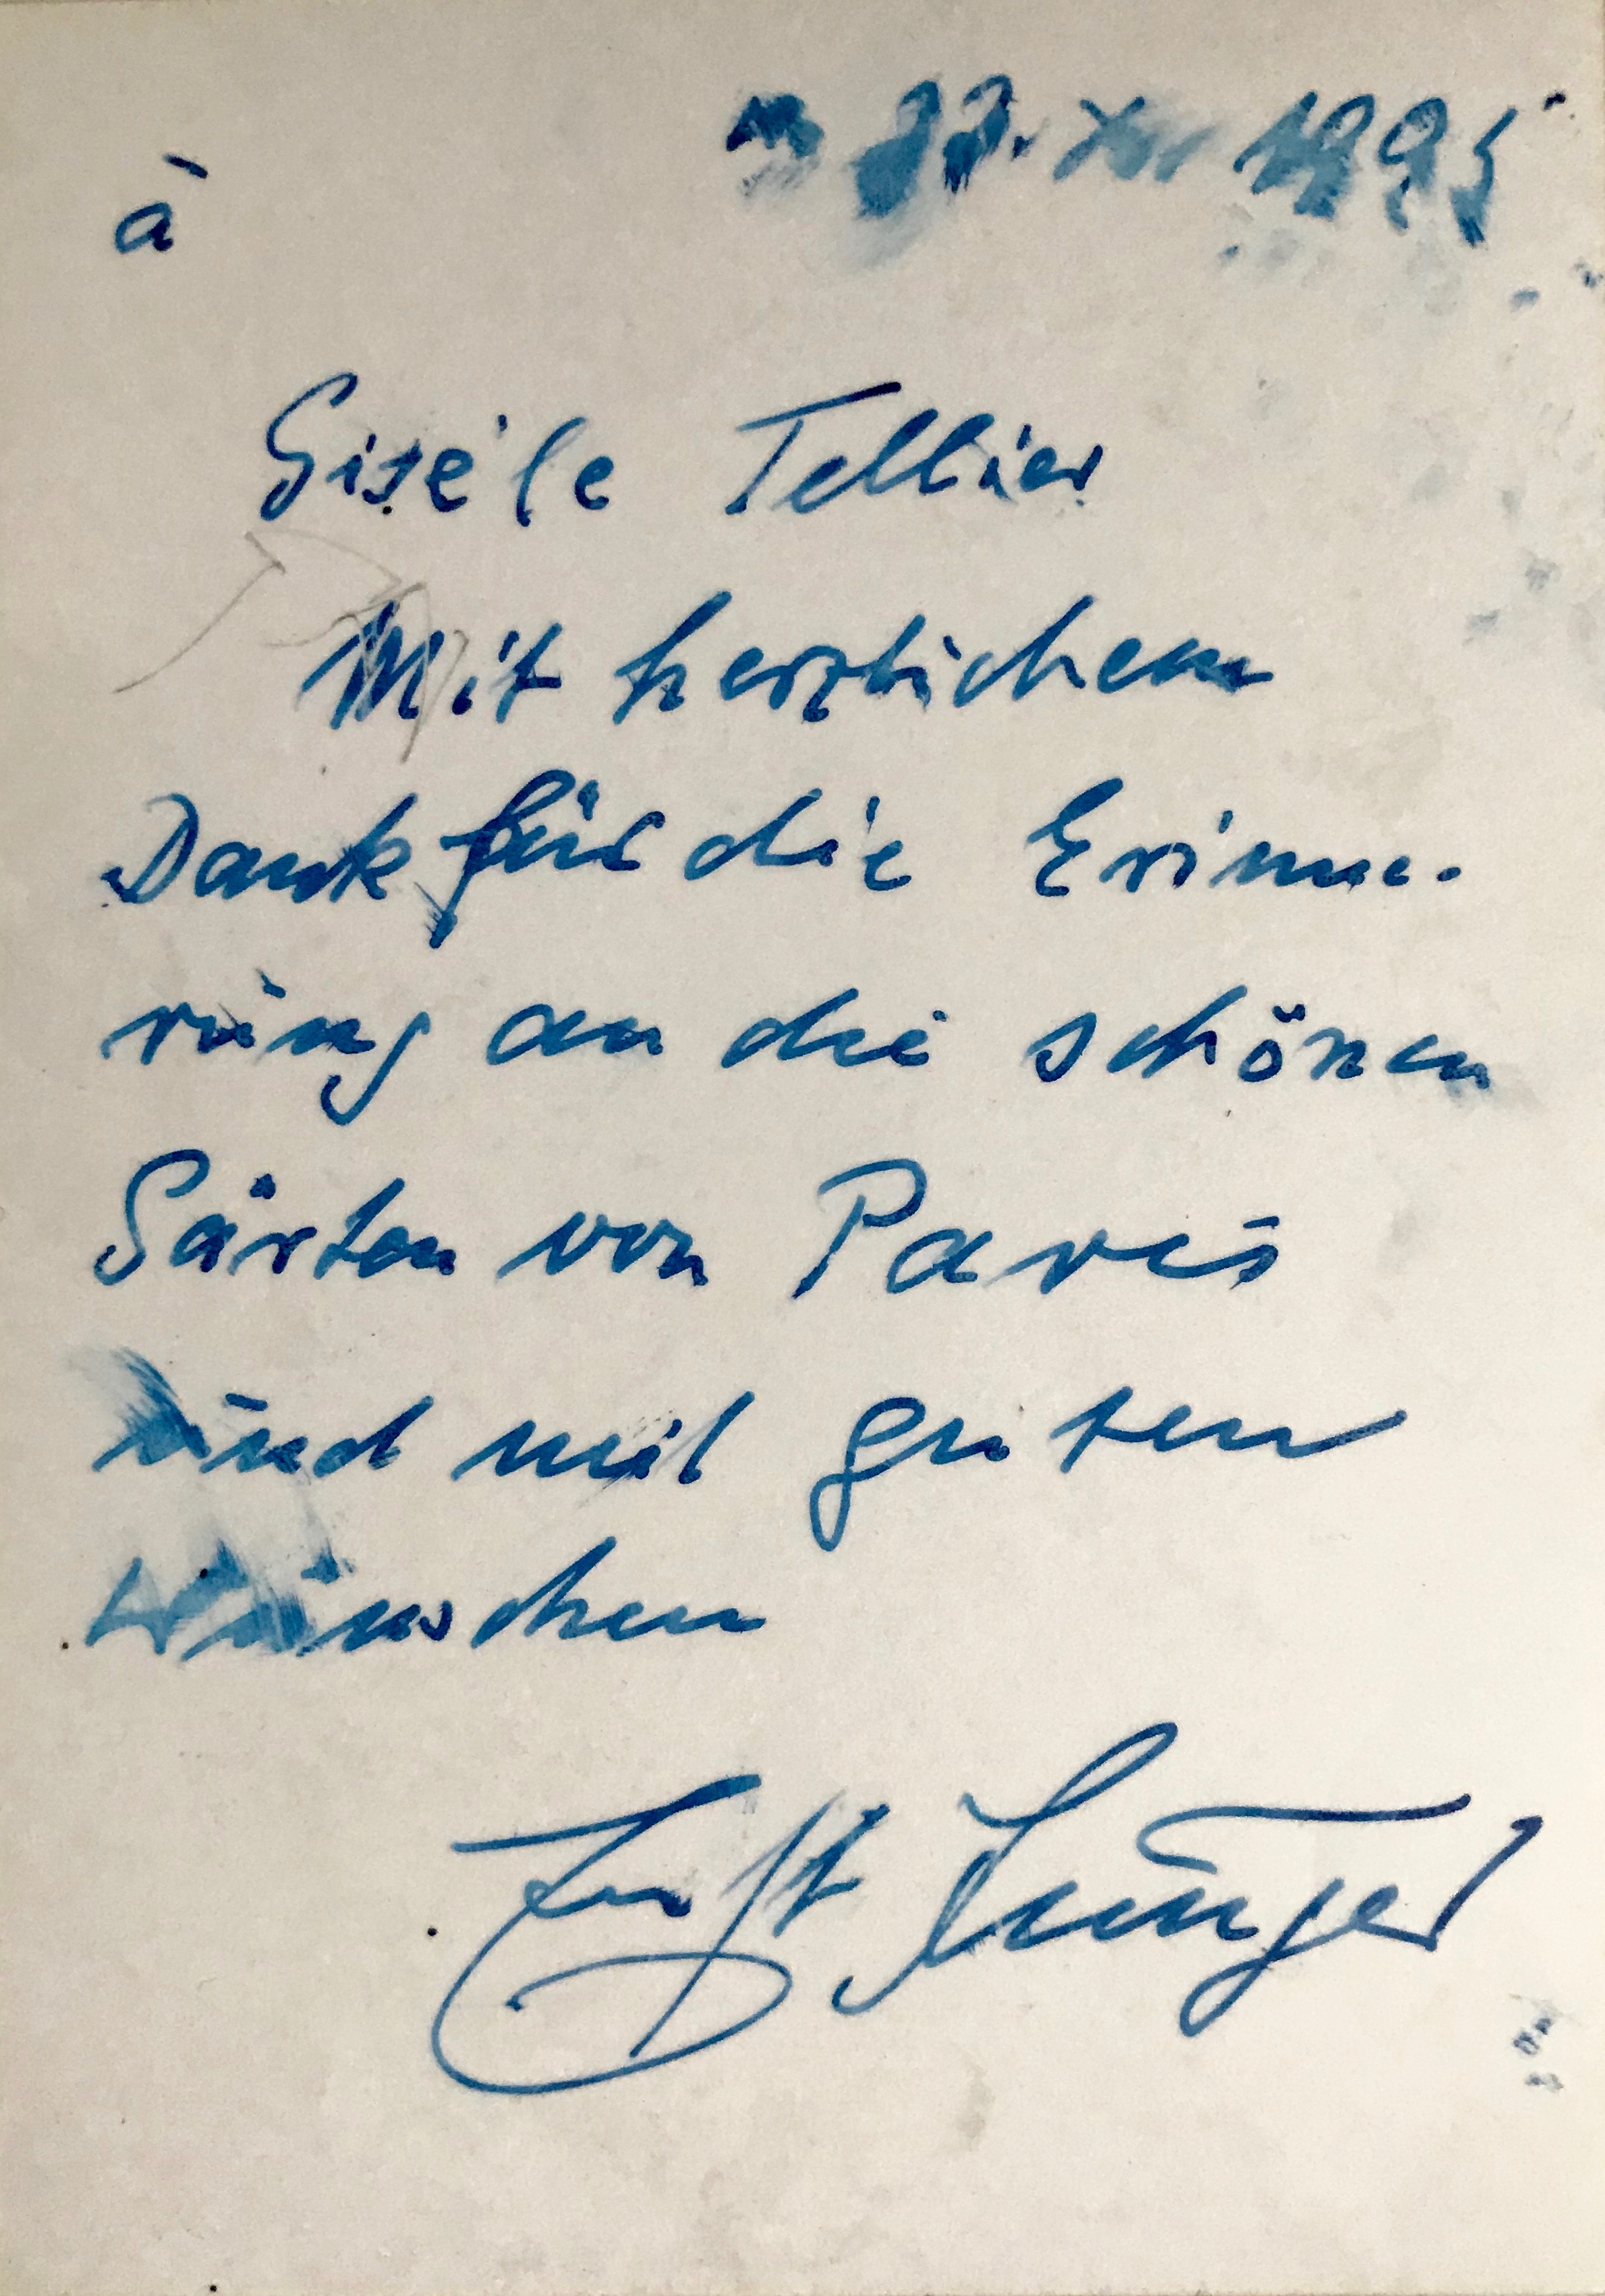 1995
à
Gisèle Tellier
Mit herzlichem
Dank für die Erinne-
rung an die schönen
Gärten von Paris
und mit guten
Wünschen
Ernst Jünger